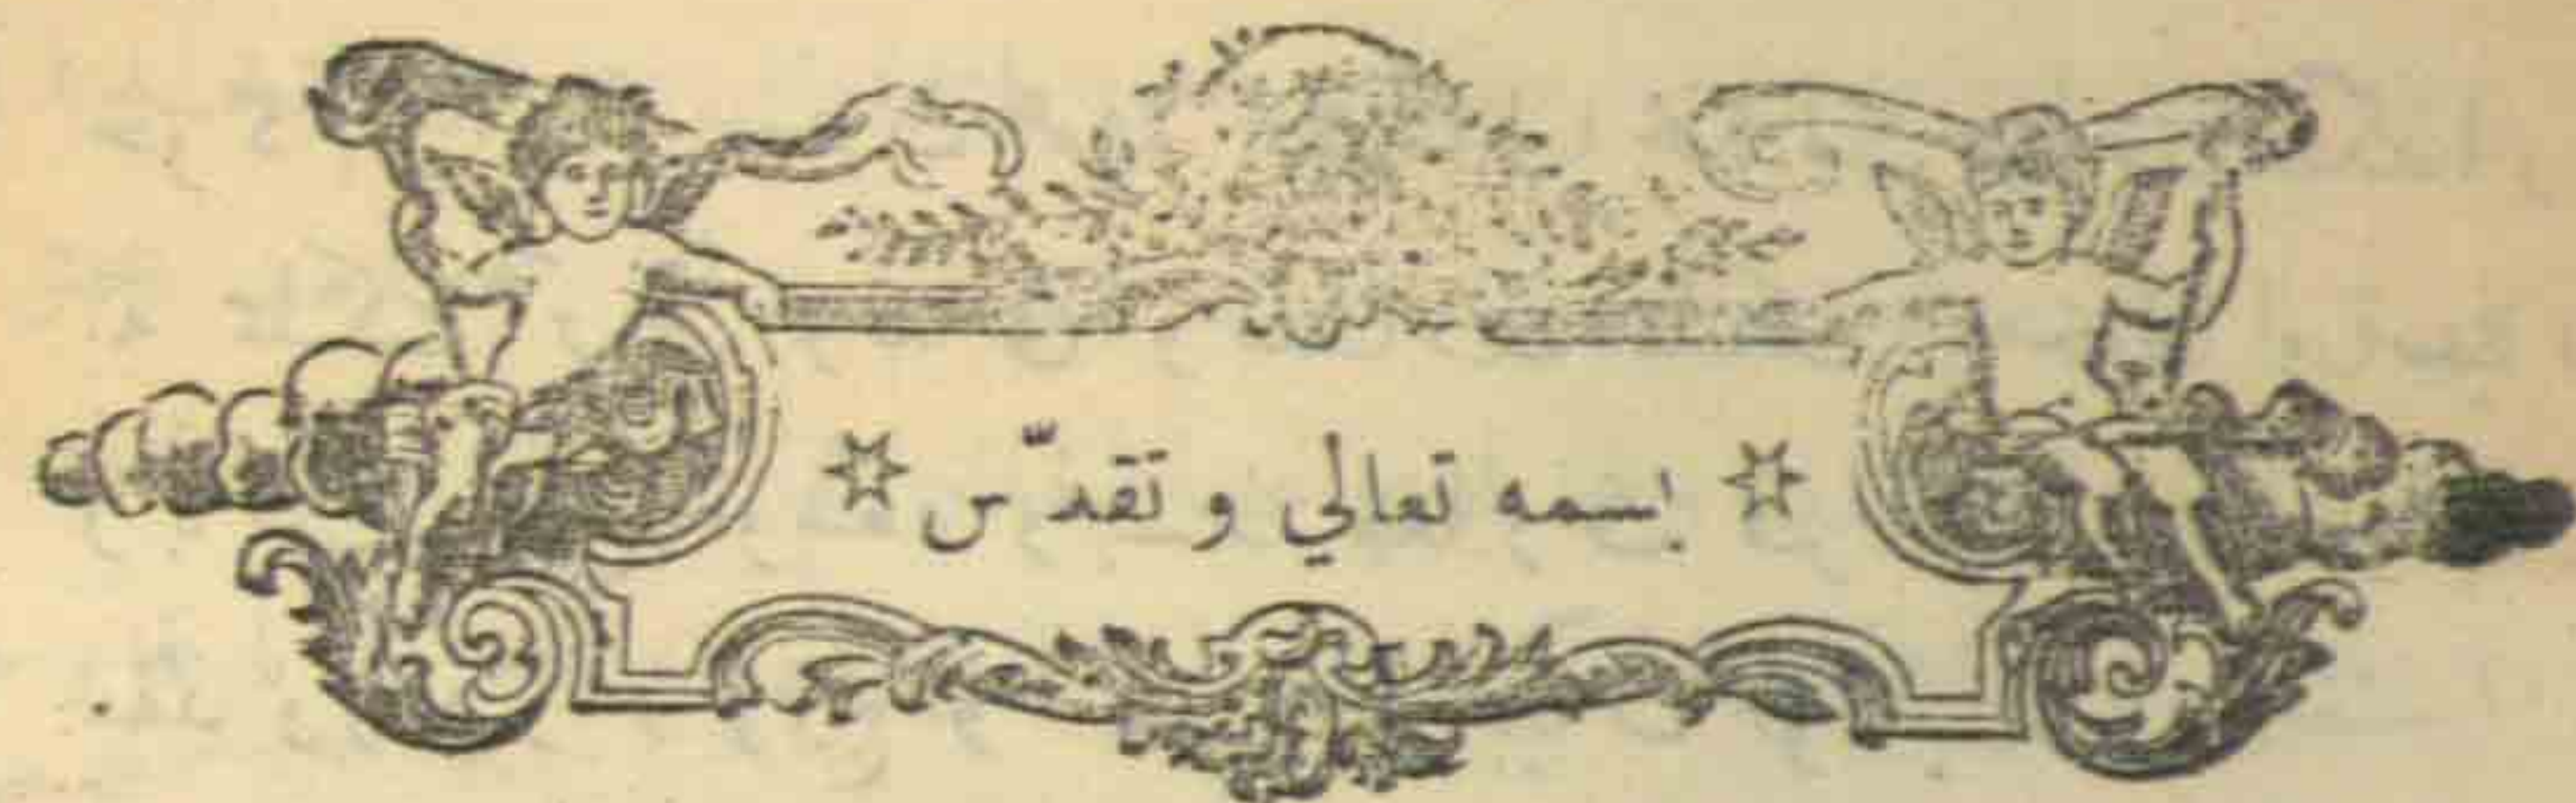 بسمه تعالي و تقدّس